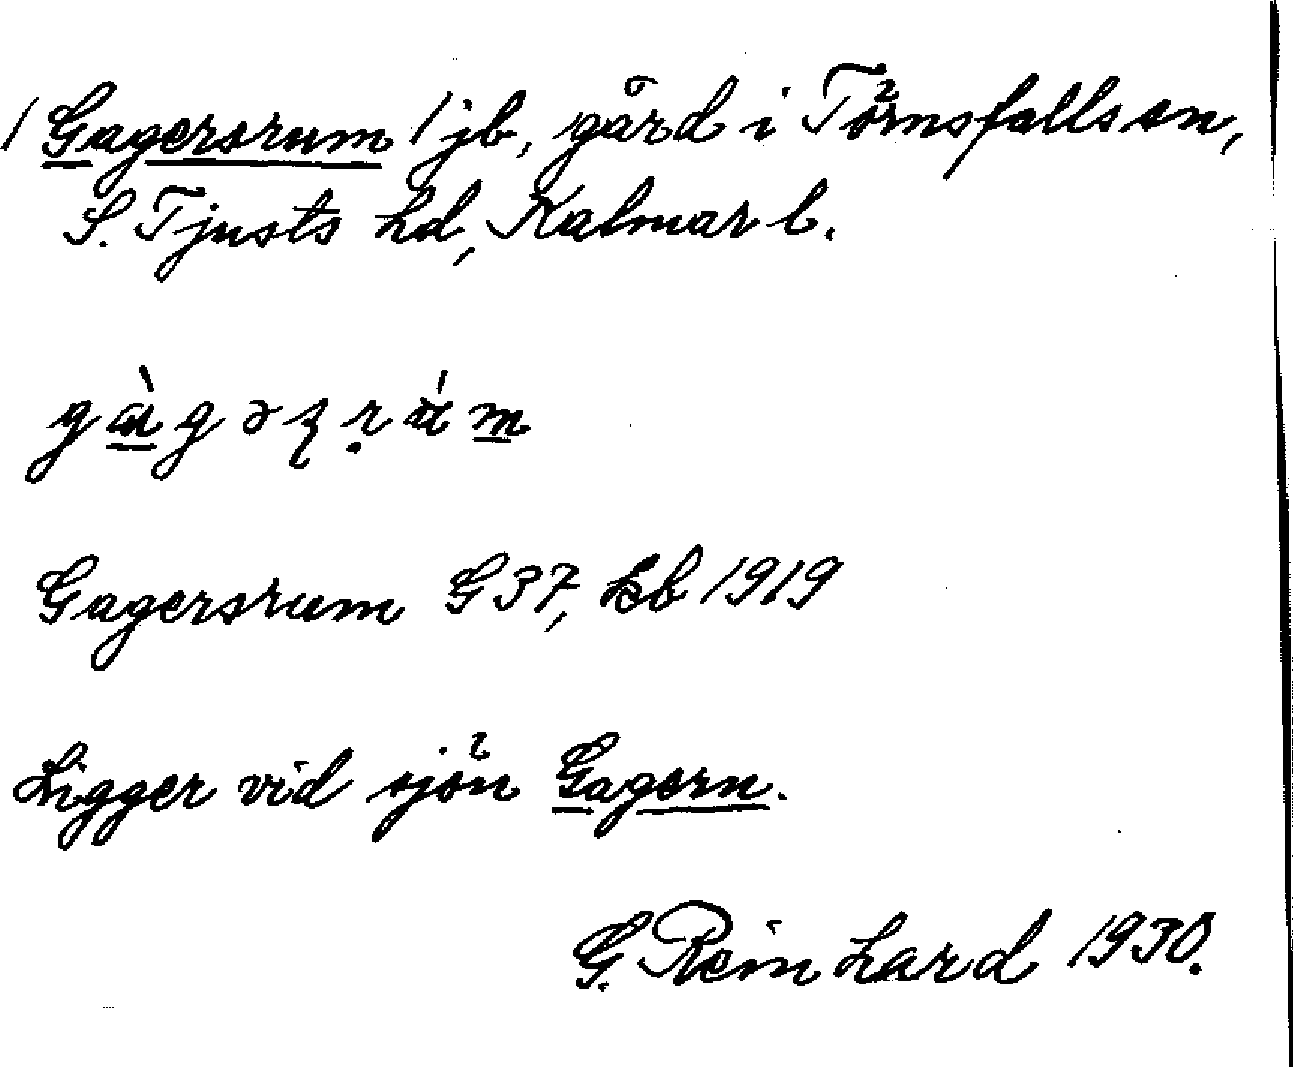 / Gagersrum / jb, gård i Törnsfalls sn,
S. Tjusts hd, Kalmar l.
gàgəʐṛúm
Gagersrum G37, kb 1919
Ligger vid sjön Gagern.
G. Reinhard 1930.